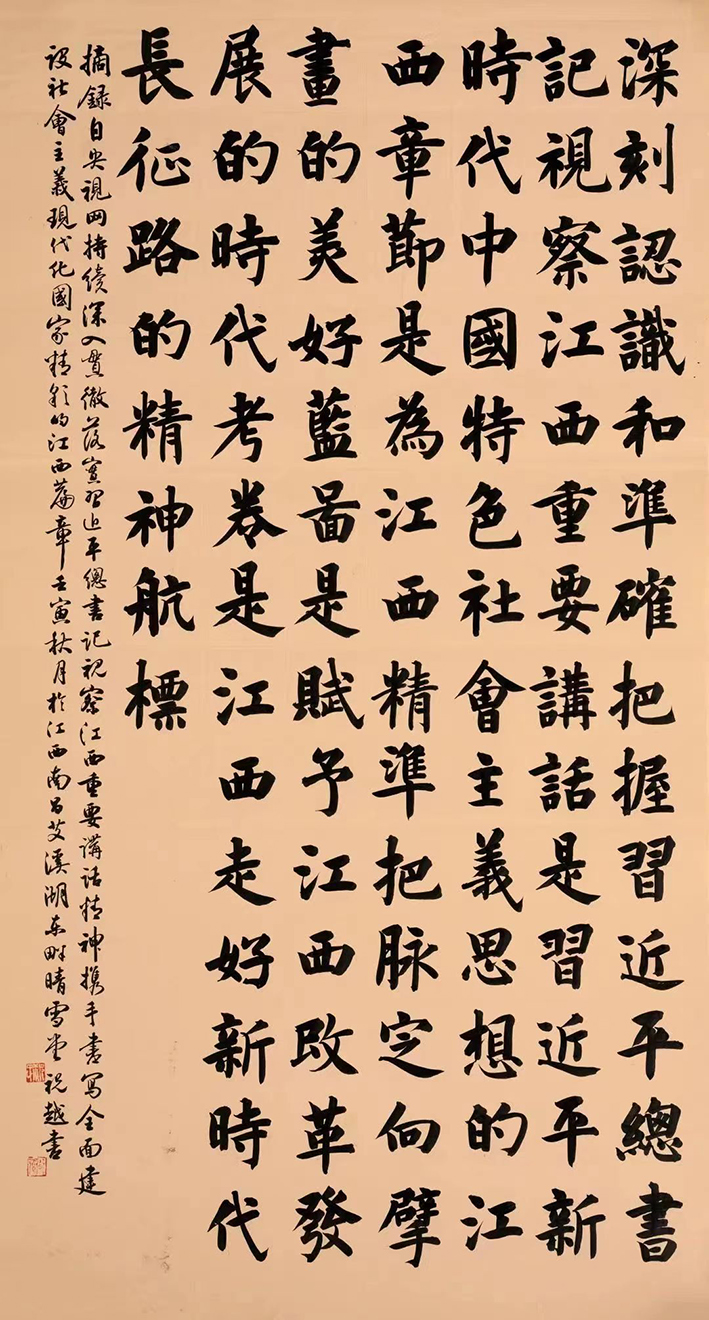 深刻認識和準確把握習近平總書
記視察江西重要講話是習近平新
時代中國特色社會主義思想的江
西章節是為江西精準把脉定向擘
畫的美好藍圖是賦予江西改革發
展的時代考卷是江西走好新時代
長征路的精神航標
摘録自央視网持續深入貫徹落實習近平總書記視察江西重要講話精神携手書寫全面建
設社會主義現代化國家精彩的江西篇章壬寅秋月於江西南昌艾溪湖东畔晴雪堂祝越书